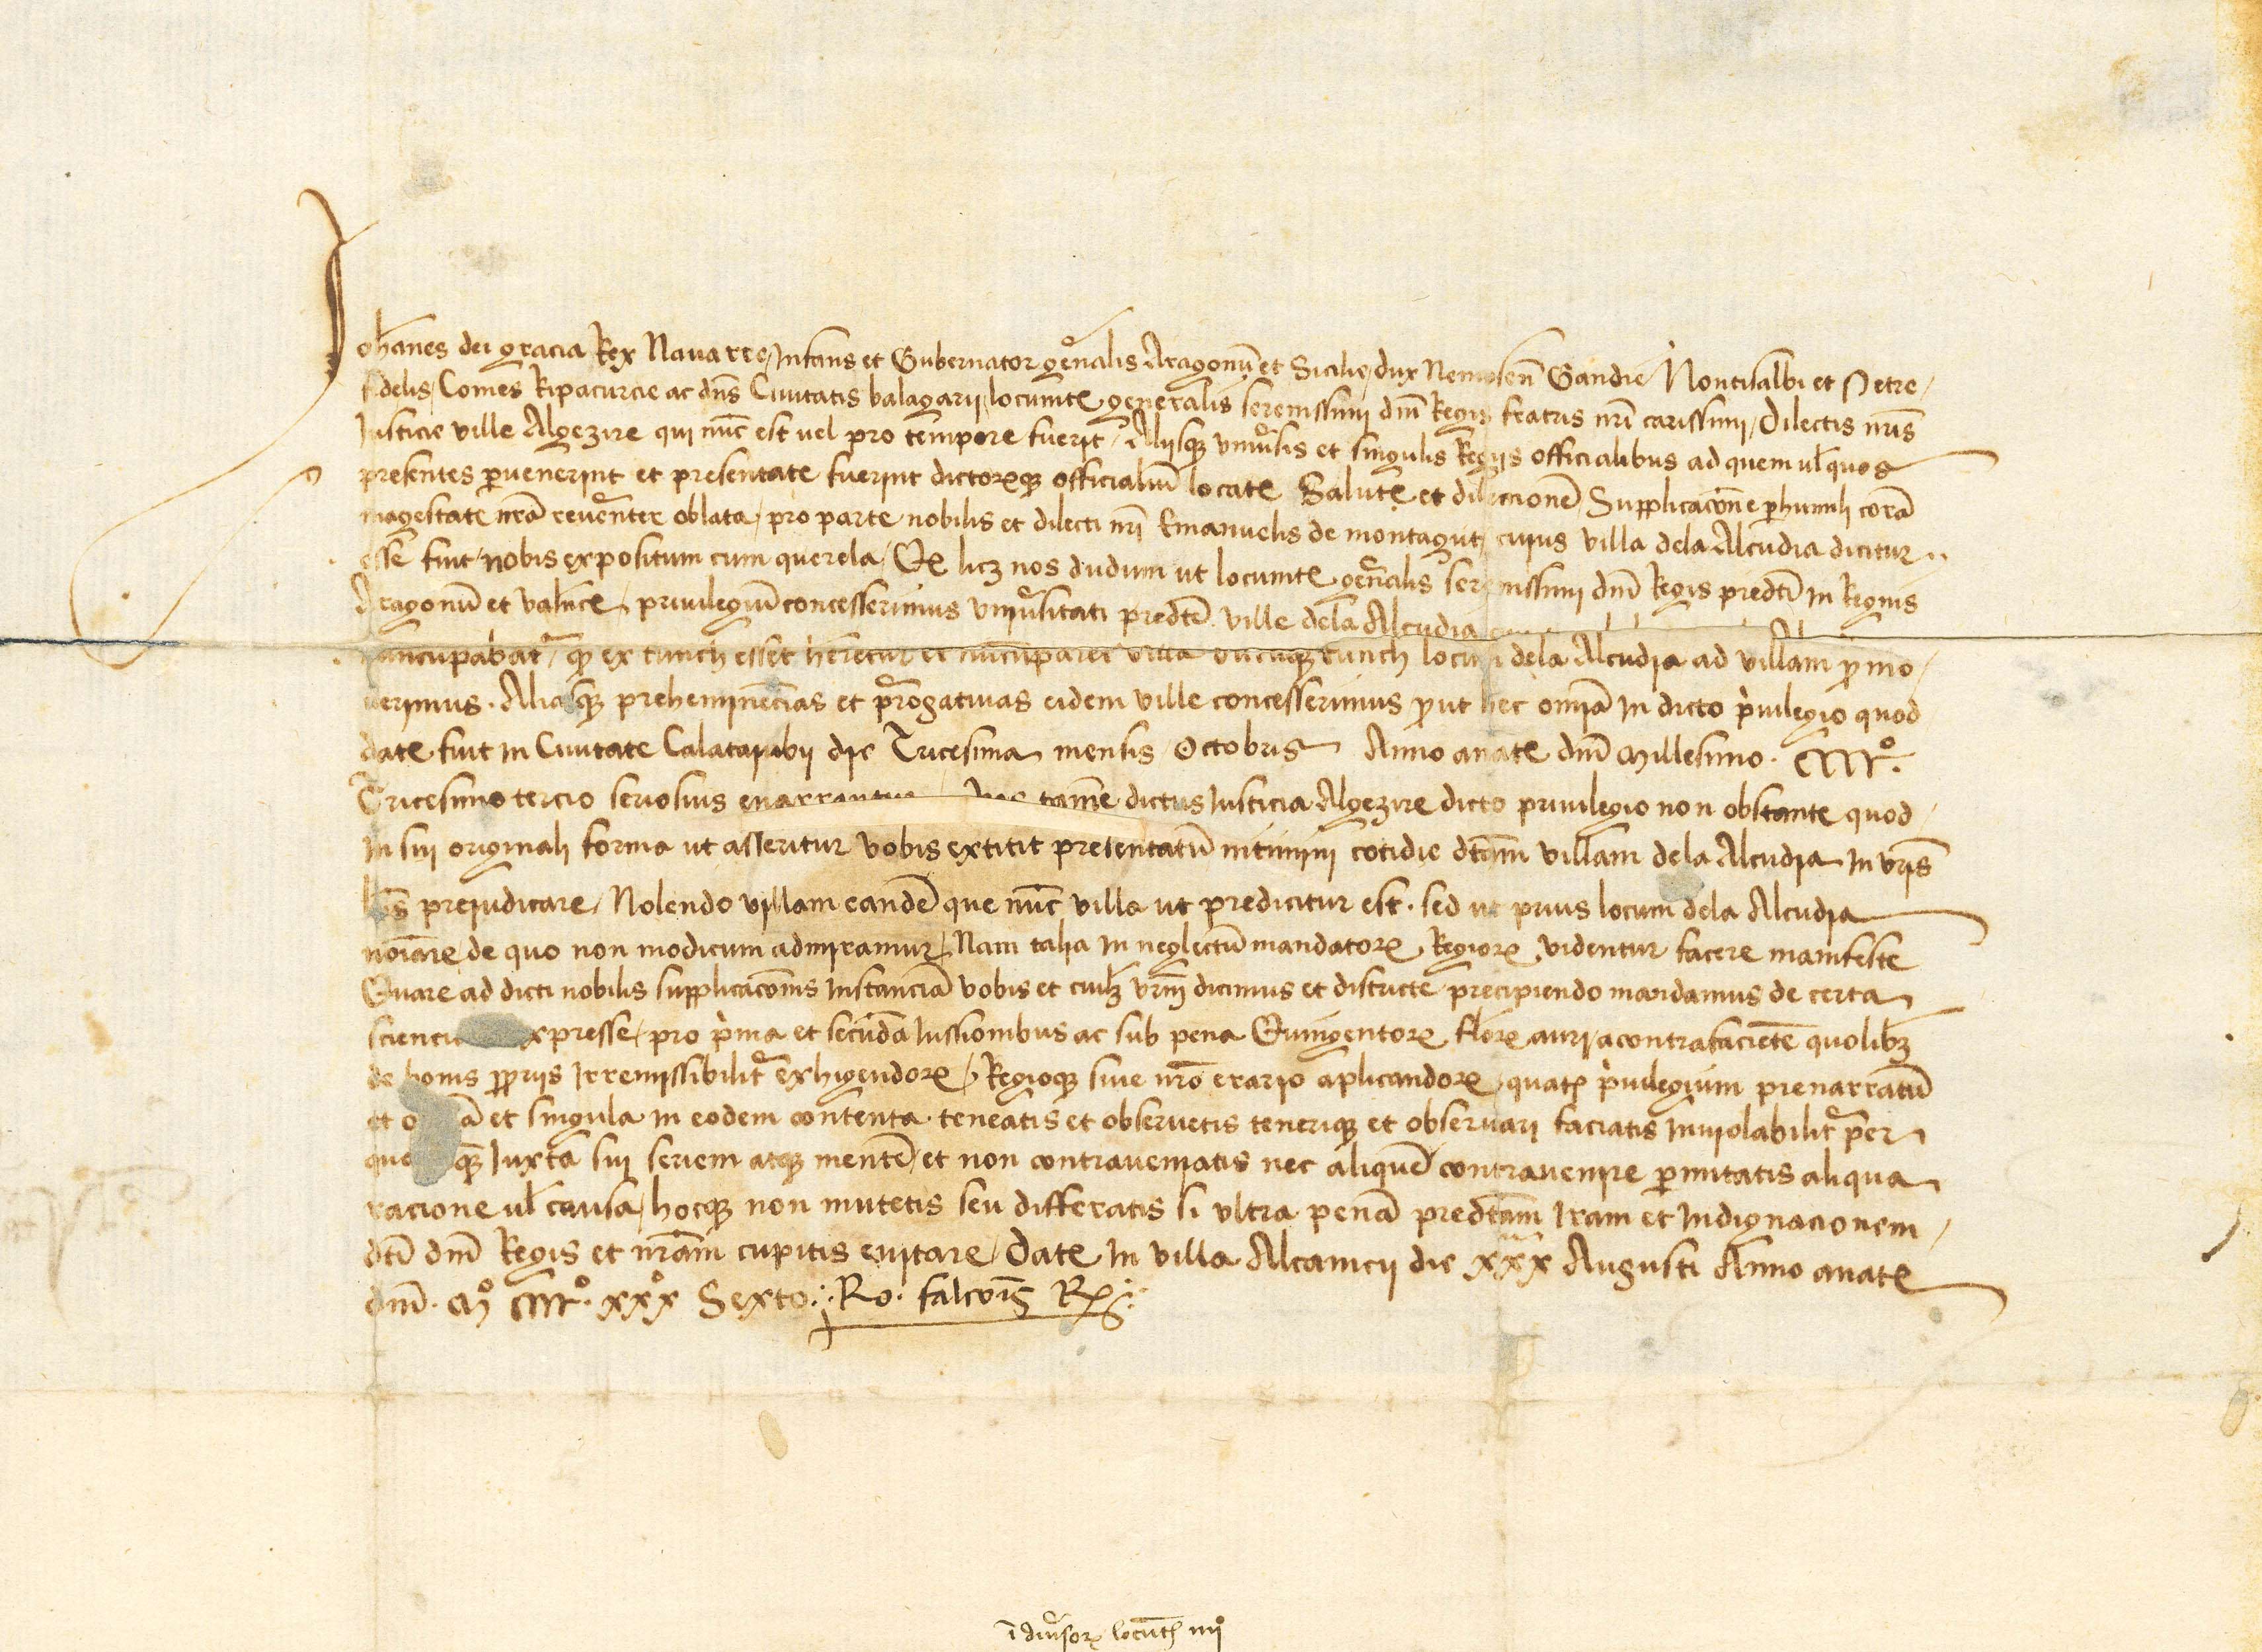 Johanes dei gracia Rex Navarre / Infans et Gubernator gen̄alis Aragonū et Sicilie / dux Nemosen̄ Gandie Montisalbi et Petre /
fidelis / Comes Ripacurcie ac dn̄s Ciuitatis balagarii / locumteꝫ generalis serenissimi dn̄i Regis fratris nr̄i carissimi / Dilectis nr̄is
Iusticie ville Algezire qui nūc est uel pro tempore fuerit / Aliisqꝫ vniu̓sis et singulis Regiis officialibus ad quem ul̄ quos
presentes ꝑvenerint et presentate fuerint dictorꝫqꝫ officialiū locateꝫ Saluteꝫ et dilectionē Supplicacōne ꝑhumili corā
magestate nr̄a reuerenter oblata / pro parte nobilis et dilecti nr̄i Emanuelis de montagut / cuius villa dela Alcudia dicitur
esse fuit nobis expositum cum querela / Qꝫ licꝫ nos dudum ut locumteꝫ gen̄alis serenissimi dn̄i Regis predc̄i in Regnis
Aragonū et valn̄ceꝫ / priuilegiū concesserimus vniu̓sitati predc̄e ville dela Alcudia
nuncupabat̓ / qꝫ ex tunch esset heretur et nūcuparet villa tunch locum dela Alcudia ad villam ꝓmo /
uerimus . Aliasqꝫ preheminēcias et prrogatiuas eidem ville concesserimus ꝓut hec omia in dicto p̓uilegio quod
dateꝫ fuit in Ciuitate Calataiubii die Tricesima mensis Octobris Anno anateꝫ dn̄i Millesimo . CCCCº .
Tricesimo tercio seriosius enarrantur vos tamē dictus Iusticia Algezire dicto priuilegio non obstante quod /
in sui originali forma ut asseritur vobis extitit presentatū nitimini cotidie dc̄am villam dela Alcudia in vr̄is
lr̄is preiudicare / Nolendo villam eandē que nūc villa ut predicitur est . sed ut prius locum dela Alcudia
noīare de quo non modicum admiramur / Nam talia in neglectū mandatorꝫ Regiorꝫ videntur facere manifeste
Quare ad dicti nobilis supplicacōnis instanciā vobis et cuilꝫ vr̄m dicimus et districte precipiendo mandamus de certa
sciencia expresse / pro p̓ma et secūda iussionibus ac sub pena Quingentorꝫ florꝫ auri / a contrafacientē quolibꝫ
de bonis ꝓpriis irremissibilit̓ exhigendorꝫ / Regioqꝫ siue nr̄o erario aplicandorꝫ / quatꝫ p̓uilegium prenarratū
et omīa et singula in eodem contenta teneatis et obseruetis tenerique et obseruari faciatis inuiolabilit̓ per
quoscūqꝫ iuxta sui seriem atqꝫ mentē / et non contraueniatis nec aliquē contrauenire ꝑmittatis aliqua
racione ul̄ causa / hocqꝫ non mutetis seu differatis si ultra penā predc̄am iram et indignacionem /
dc̄i dn̄i Regis et nr̄am cupitis euitare / Dateꝫ in villa Alcanicii die xxx Augusti Anno anateꝫ
dn̄i . Mº CCCCº . xxxº Sexto : Ro . falconis Rꝫ
ī diu̓sorꝫ locūtꝫ iiiiº